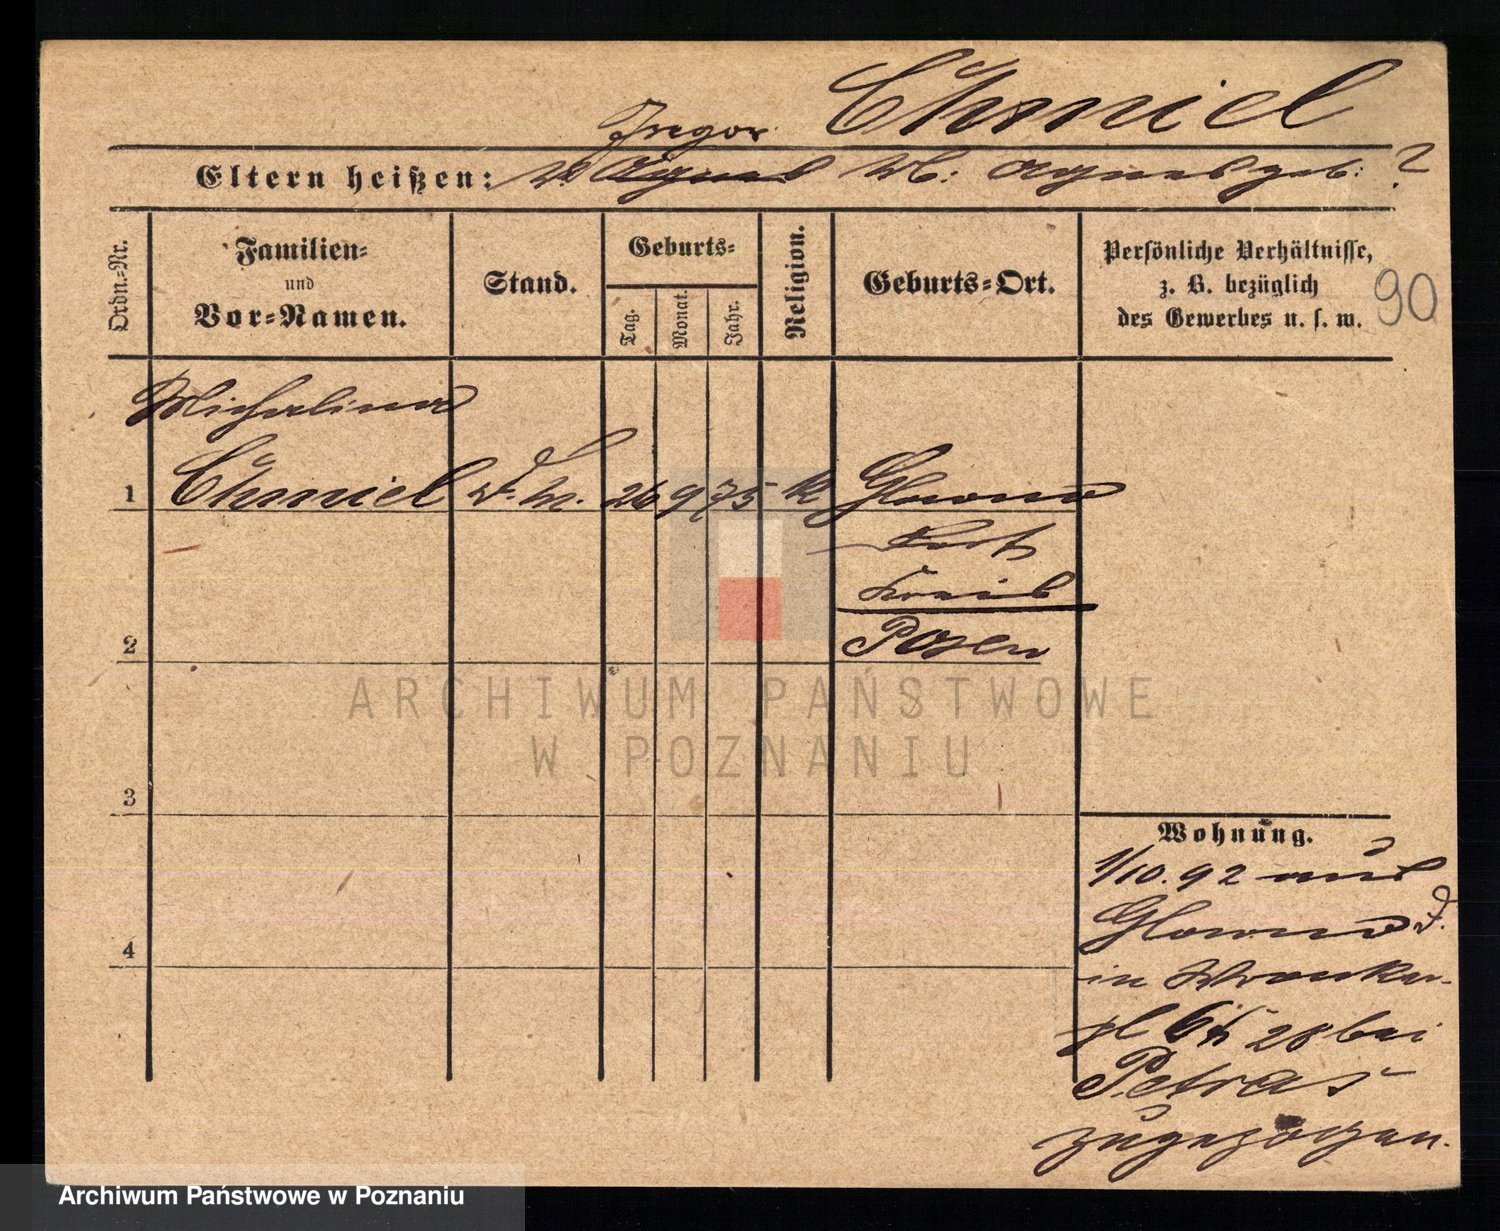 Chmiel
Gregor
Eltern heißen: V. Agnes M. Agnes geb. ?
Ordn.-Nr.
Familien-
und
Vor-Namen.
Stand.
Geburts-
Tag.
Monat.
Jahr.
Religion.
Geburts-Ort.
Persönliche Verhältnisse,
z. B. bezüglich
des Gewerbes u. s. w.
90
Michalina
1 Chmiel 26 9 75 k Glowno
Kreis
2 Posen
3
4
Wohnung.
1/10. 92 aus
Glowno
in Wronker-
pl 28 bei
Petras
zugezogen.
ARCHIWUM PAŃSTWOWE
W POZNANIU
Archiwum Państwowe w Poznaniu